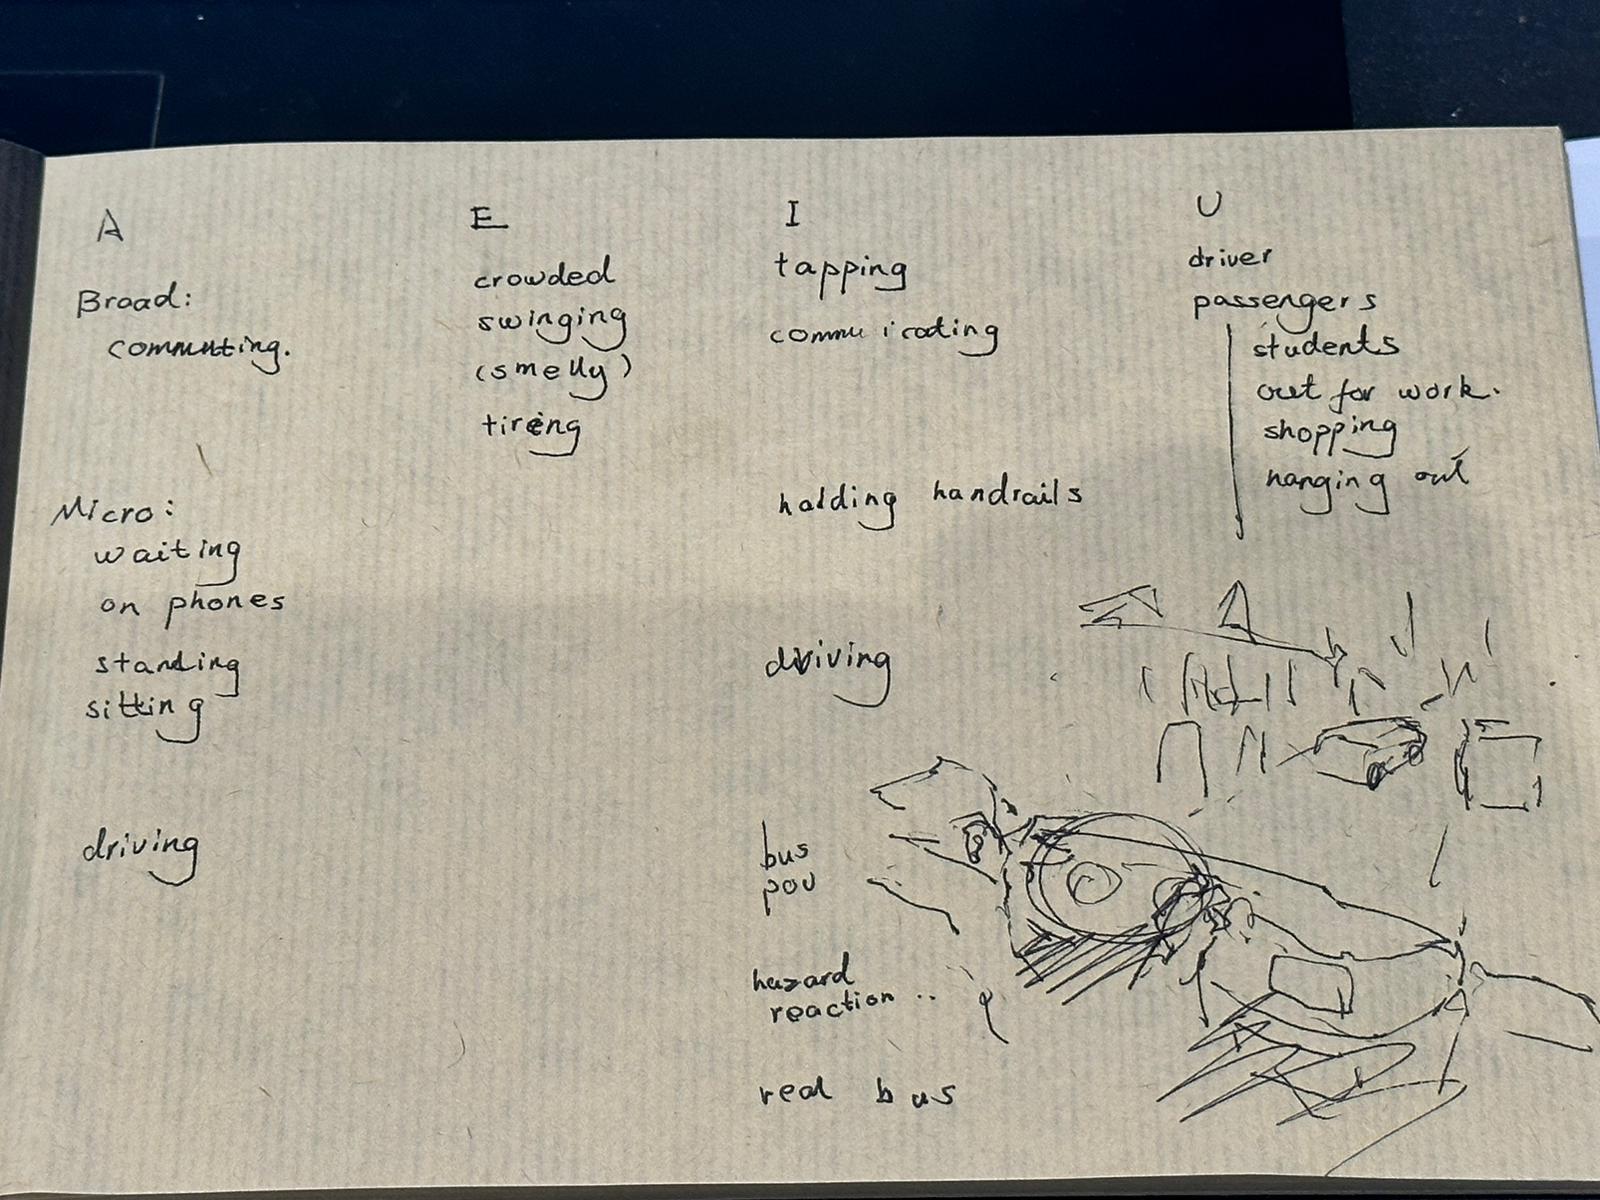 A
Broad:
commuting.
Micro:
waiting
on phones
standing
sitting
driving
E
crowded
swinging
(smelly)
tireing
I
tapping
commuicating
holding handrails
driving
bus
pov
hazard
reaction ..
real bus
U
driver
passengers
students
out for work.
shopping
hanging out